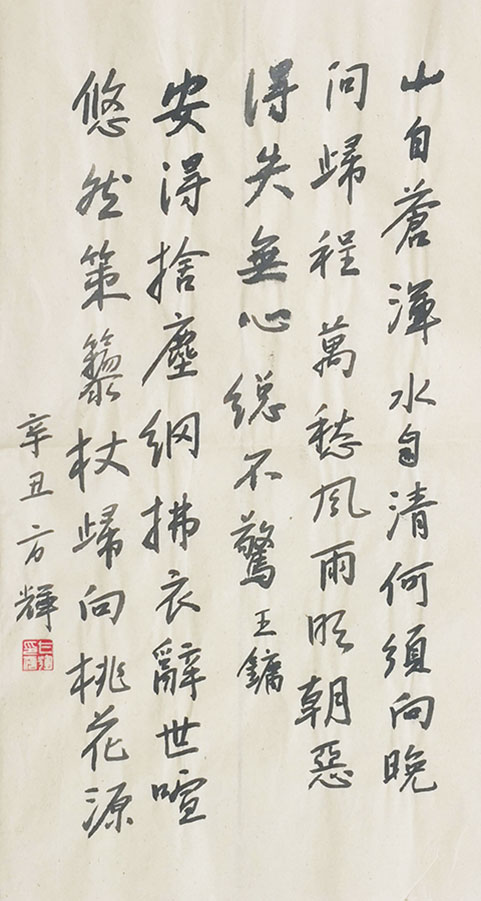 山自蒼渾水自清何須向晚
問歸程萬愁風雨明朝惡
得失無心總不驚王鏞
安得捨塵網拂衣辭世喧
悠然策藜杖歸向桃花源
辛丑方輝